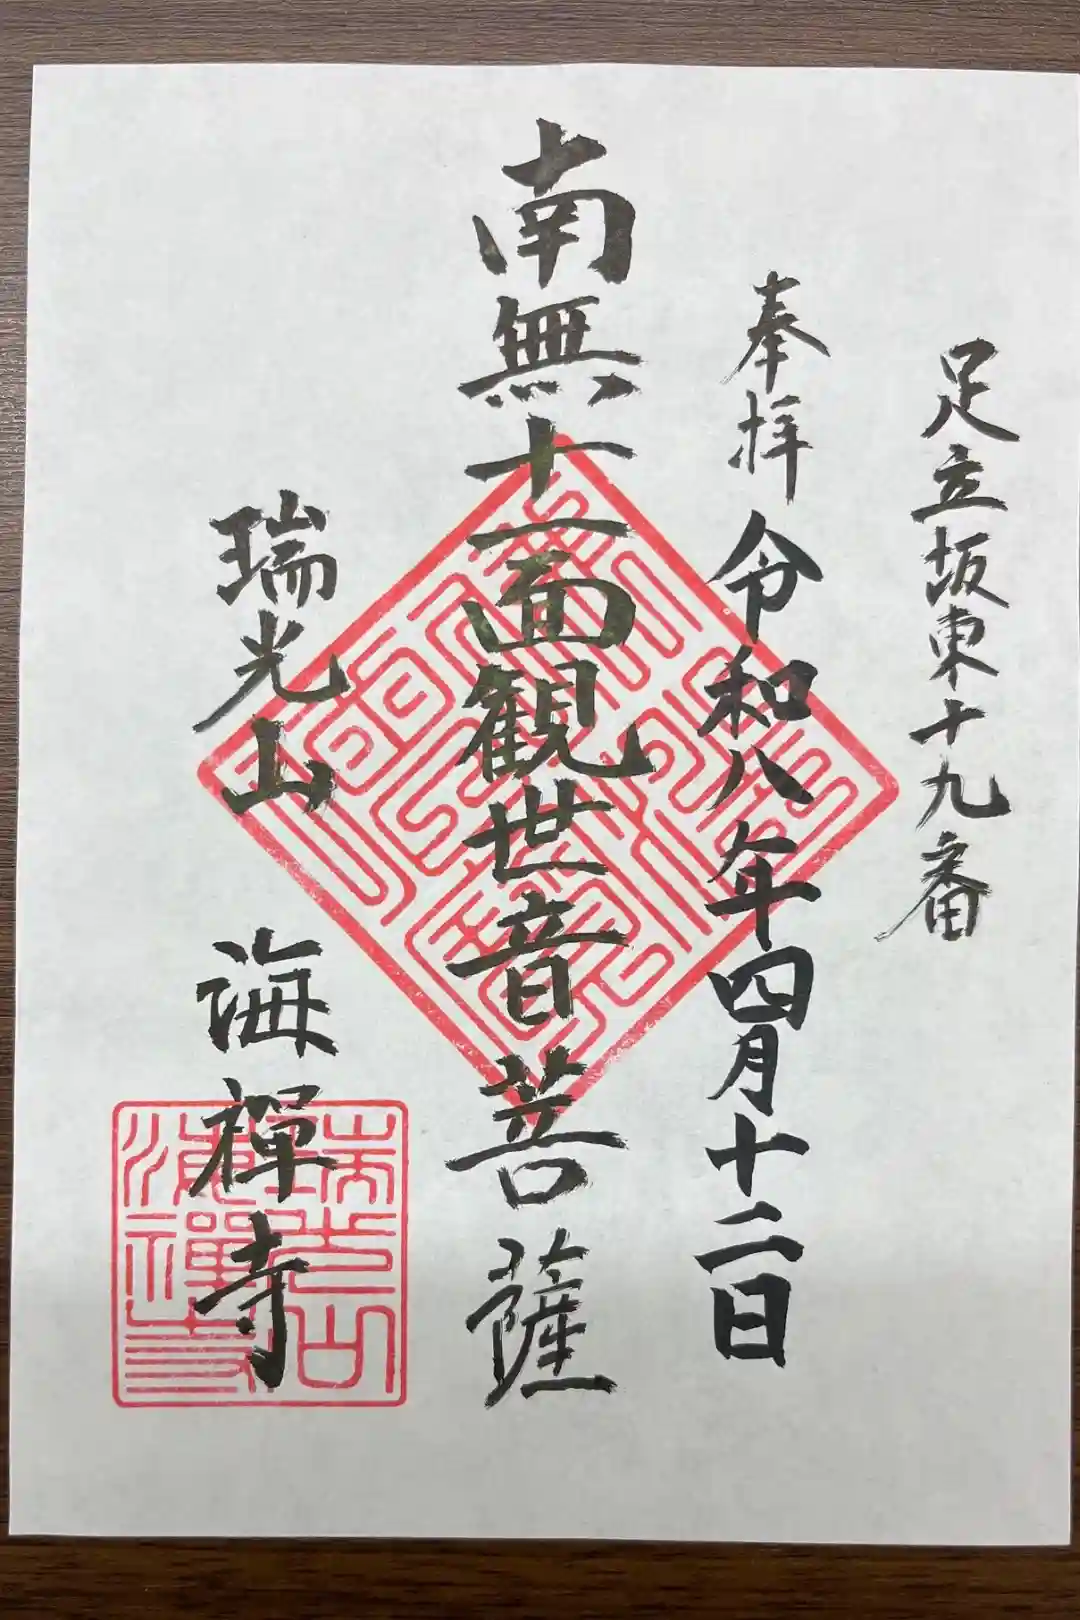 足立坂東十九番
奉拝 令和八年四月十二日
南無十一面観世音菩薩
瑞光山 海禅寺
瑞光山
海禅寺